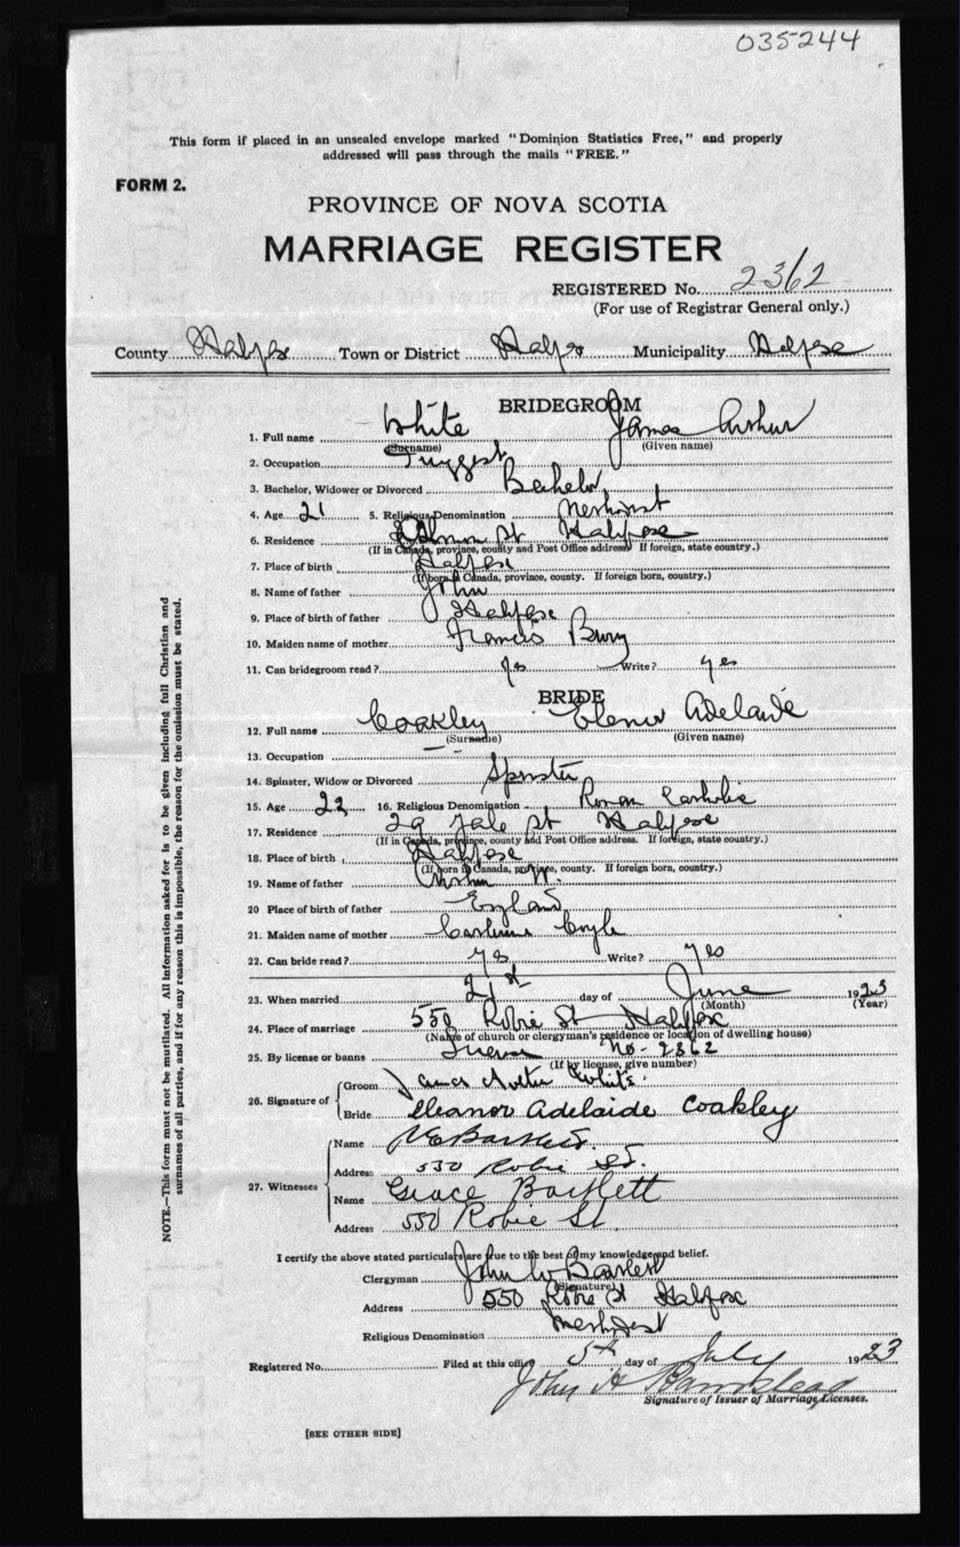 035244
This form if placed in an unsealed envelope marked "Dominion Statistics Free," and properly
addressed will pass through the mails "FREE."
FORM 2.
PROVINCE OF NOVA SCOTIA
MARRIAGE REGISTER
REGISTERED No. 2362
(For use of Registrar General only.)
County Halifax Town or District Halifax Municipality Halifax
BRIDEGROOM
1. Full name White James Arthur
(Surname) (Given name)
2. Occupation
3. Bachelor, Widower or Divorced Bachelor
4. Age 21 5. Religious Denomination Methodist
6. Residence St Halifax
(If in Canada, province, county and Post Office address If foreign, state country.)
7. Place of birth Halifax
(If born in Canada, province, county. If foreign born, country.)
8. Name of father John
9. Place of birth of father Halifax
10. Maiden name of mother Francis
11. Can bridegroom read? yes Write? yes
BRIDE
12. Full name Coakley Elenor Adelaide
(Surname) (Given name)
13. Occupation —
14. Spinster, Widow or Divorced Spinster
15. Age 22 16. Religious Denomination Roman Catholic
17. Residence 29 Yale St Halifax
(If in Canada, province, county and Post Office address. If foreign, state country.)
18. Place of birth Halifax
(If born in Canada, province, county. If foreign born, country.)
19. Name of father W.
20 Place of birth of father England
21. Maiden name of mother Coyle
22. Can bride read? yes Write? yes
23. When married 21st day of June 1923
(Month) (Year)
24. Place of marriage 550 Robie St Halifax
(Name of church or clergyman's residence or location of dwelling house)
25. By license or banns No - 2362
(If by license, give number)
26. Signature of Groom James Arthur White.
Bride Eleanor Adelaide Coakley
27. Witnesses Name
Address 550 Robie St.
Name Grace Bartlett
Address 550 Robie St.
I certify the above stated particulars are true to the best of my knowledge and belief.
Clergyman John W Bartlett
(Signature)
Address 550 Robie St Halifax
Religious Denomination Methodist
Registered No. Filed at this office 5th day of July 1923
John H
Signature of Issuer of Marriage Licenses.
[SEE OTHER SIDE]
NOTE.—This form must not be mutilated. All information asked for is to be given including full Christian and
surnames of all parties, and if for any reason this is impossible, the reason for the omission must be stated.